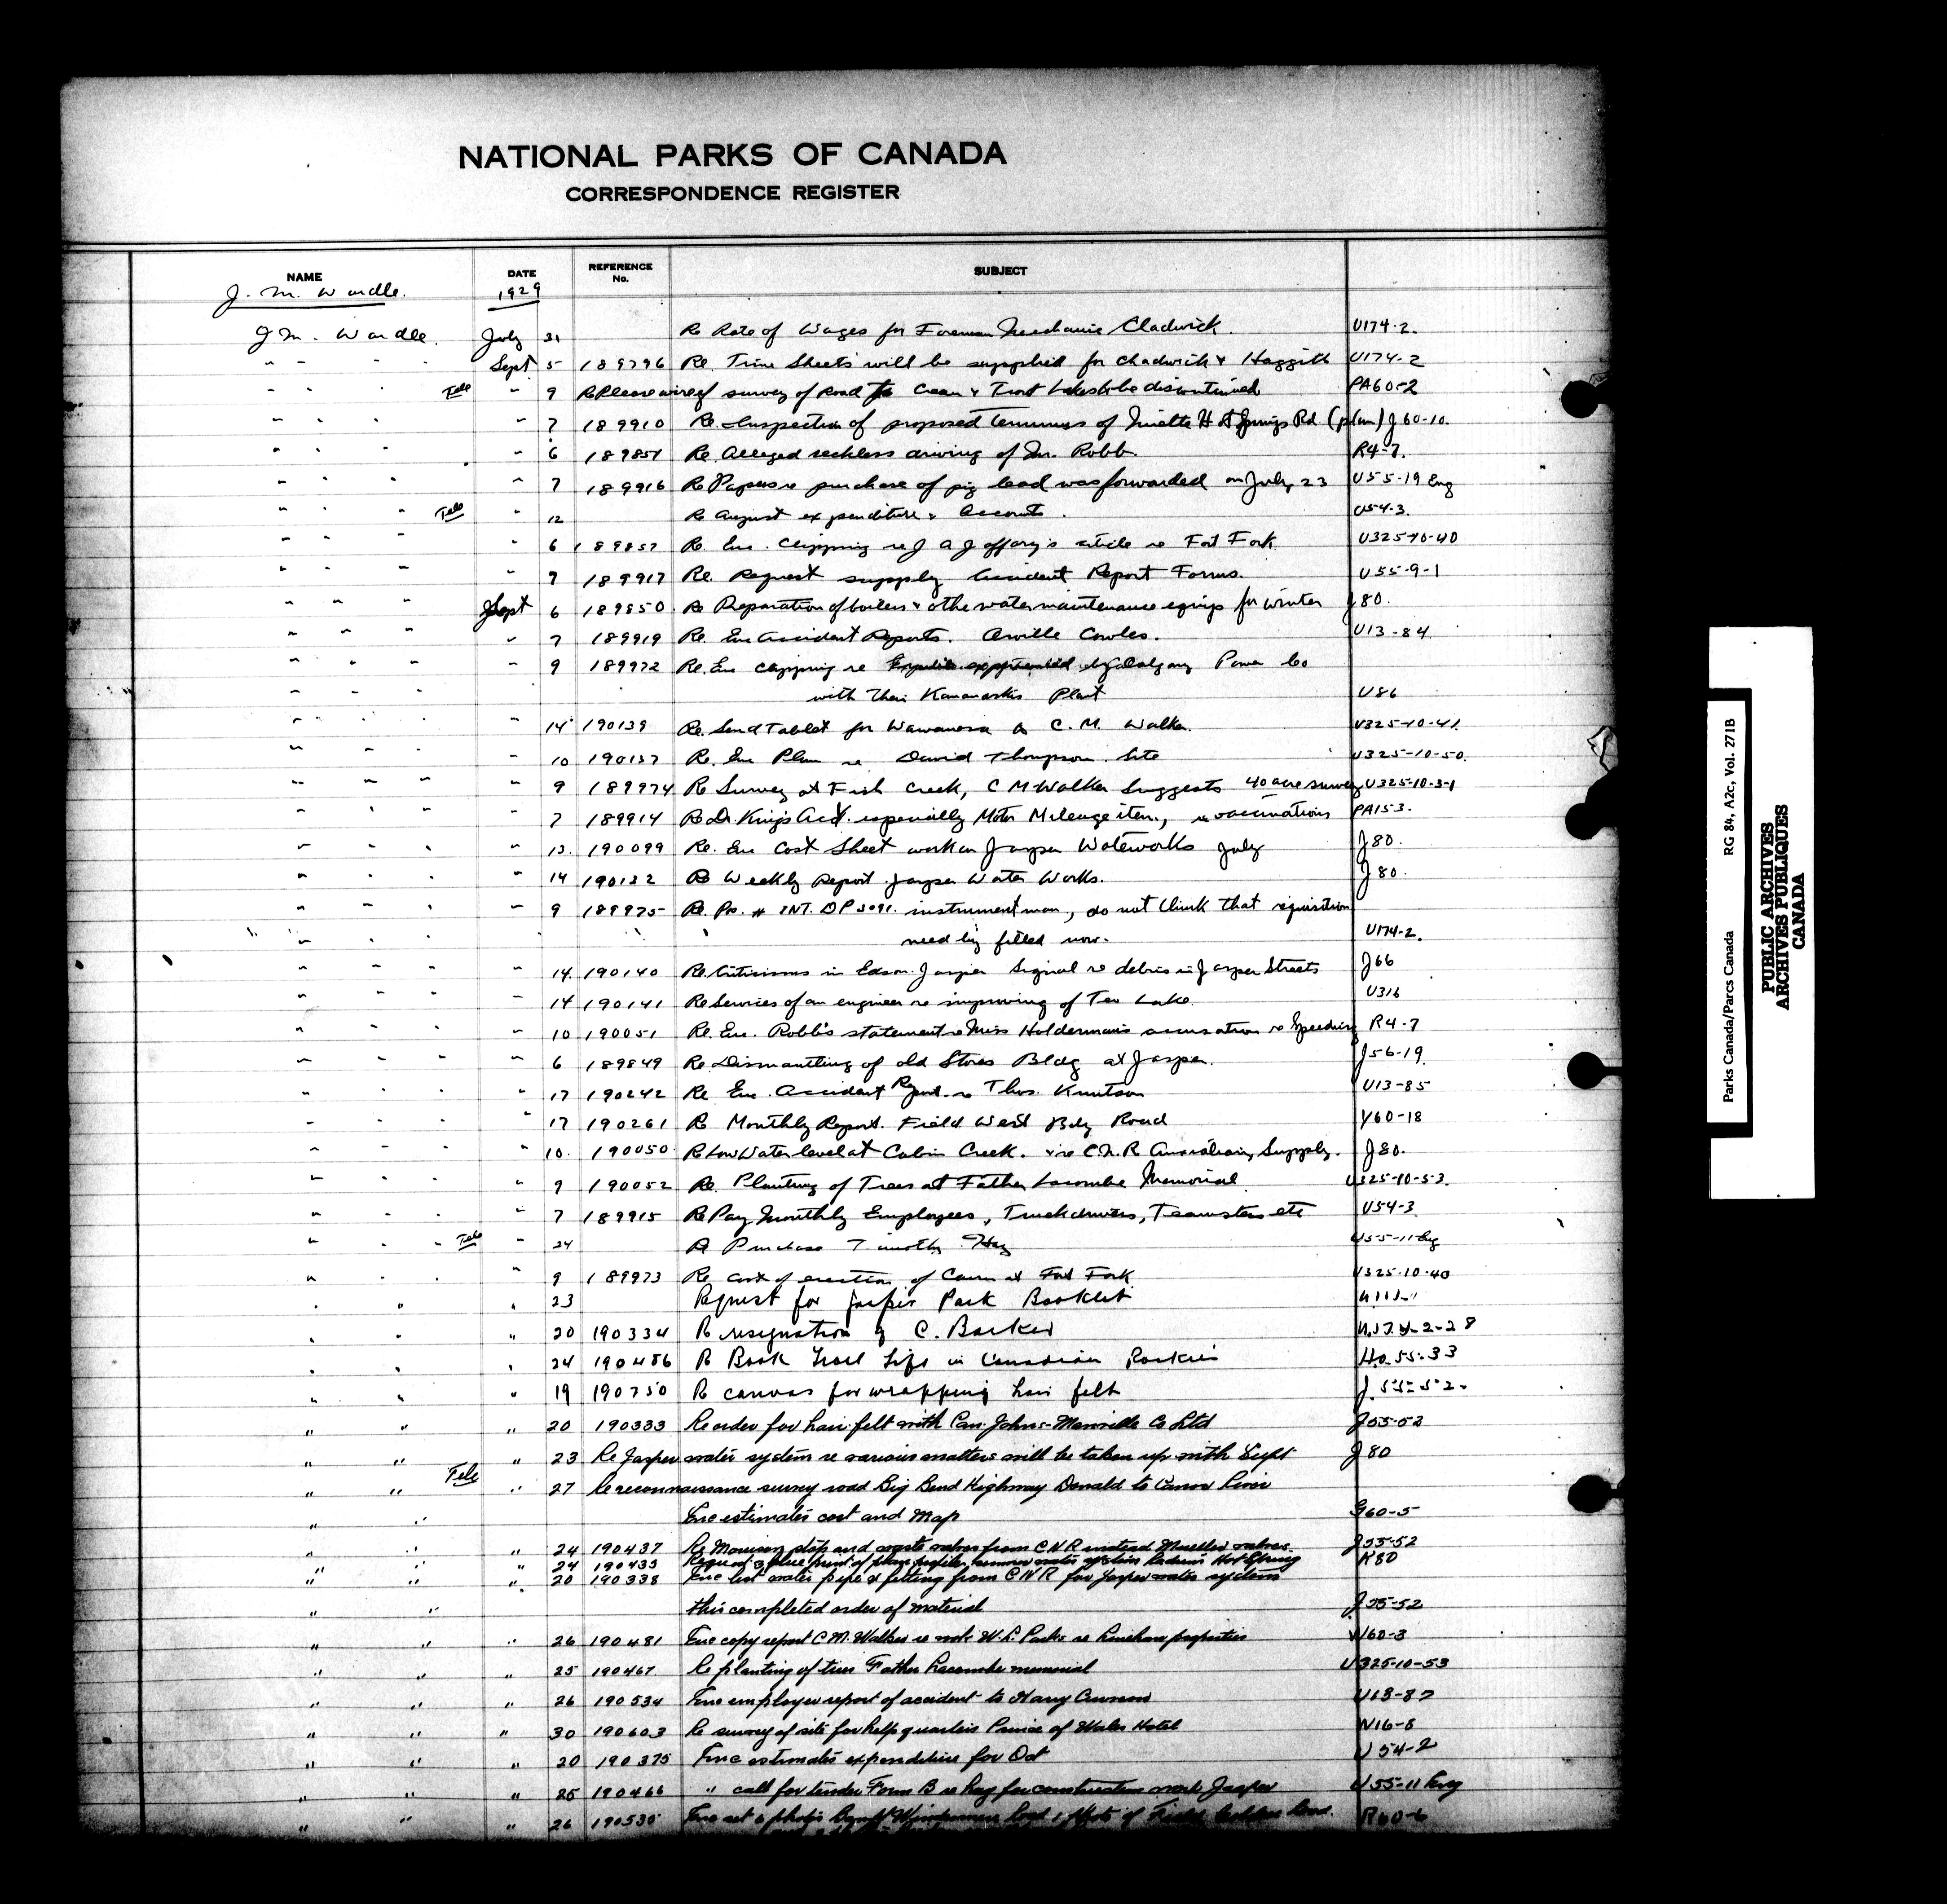 NATIONAL PARKS OF CANADA
CORRESPONDENCE REGISTER
NAME DATE REFERENCE No. SUBJECT
J. M. Wardle. 1929
J. M. Wardle. July 31 Re Rate of Wages for Foreman Mechanic Chadwick. U174-2.
" " " Sept 5 189796 Re. Time Sheets will be supplied for Chadwick & Haggith U174-2
" " " Tele " 9 survey of Road to Crean & Trout Lakes to be discontinued PA60-2
" " " " 7 189910 Re. Inspection of proposed terminus of Miette Hot Springs Rd (plan) J60-10.
" " " " 6 189851 Re. Alleged reckless driving of Mr. Robb. R4-7.
" " " " 7 189916 Re Papers re purchase of pig lead was forwarded on July 23 U55-19 Eng
" " " Tele " 12 Re August expenditure & Accounts. U54-3.
" " " " 6 189857 Re. Enc. Clipping re J A Jaffary's article re Fort Fork U325-10-40
" " " " 7 189917 Re. Request supply Accident Report Forms. U55-9-1
" " " Sept 6 189850 Re Preparation of boilers & other water maintenance equip for winter J80.
" " " " 7 189919 Re. Enc Accident Reports. Orville Cowles. U13-84
" " " " 9 189972 Re. Enc clipping re by Calgary Power Co
" " " with their Kananaskis Plant U86
" " " " 14 190139 Re. Send Tablet for Wawanesa to C. M. Walker. U325-10-41.
" " " " 10 190137 Re. Enc Plan re David Thompson Site U325-10-50.
" " " " 9 189974 Re Survey at Fish Creek, C M Walker Suggests 40 acre survey U325-10-3-1
" " " " 7 189914 Re Dr. King's Acct. especially Motor Mileage item, re vaccinations PA153.
" " " " 13. 190099 Re. Enc Cost Sheet work on Jasper Waterworks July J80.
" " " " 14 190132 Re Weekly Report Jasper Water Works. J80.
" " " " 9 189975 Re. Po. # INT. DP 3091. instrument man, do not think that requisition
" " " need be filled now. U174-2.
" " " " 14. 190140 Re Criticisms in Edson-Jasper Signal re debris in Jasper Streets J66
" " " " 14 190141 Re Services of an engineer re improving of Lake. U316
" " " " 10 190051 Re. Enc. Robb's statement re Miss Holderman's accusation re Speeding R4-7
" " " " 6 189849 Re Dismantling of old Stores Bldg at Jasper. J56-19.
" " " " 17 190242 Re Enc. Accident Report re Thos. Knutson U13-85
" " " " 17 190261 Re Monthly Report. Field West Bdy Road Y60-18
" " " " 10. 190050 Re Low Water level at Cabin Creek. & re C.N.R Supply. J80.
" " " " 9 190052 Re. Planting of Trees at Father Lacombe Memorial U325-10-53.
" " " " 7 189915 Re Pay Monthly Employees, Truckdrivers, Teamsters etc U54-3
" " " Tele " 24 Re Purchase Timothy Hay U55-11-Eng
" " " " 9 189973 Re cost of erection of Cairn at Fort Fork U325-10-40
" " " 23 Request for Jasper Park Booklet
" " " 20 190334 Re resignation of C. Barker
" " " 24 190486 Re Book Trail Life in Canadian Rockies Ho. 55-33
" " " 19 190750 Re canvas for wrapping hair felt J.55-52.
" " " 20 190333 Re order for hair felt with Can. Johns-Manville Co Ltd J55-52
" " " 23 Re Jasper water system re various matters will be taken up with Supt J80
" " Tele " 27 Re reconnaissance survey road Big Bend Highway Donald to Canoe River
" " Enc estimates cost and map G60-5
" " " 24 190437 Re Morrison stop and waste valves from C N R instead Mueller valves J55-52
" " " 24 190435 Request blue print of plan profiles water system Radium Hot Spring K80
" " " 20 190338 Enc list water pipe & fitting from C N R for Jasper water system
" " this completed order of material J55-52
" " " 26 190481 Enc copy report C.M. Walker re work W. L. Park re properties W60-3
" " " 25 190467 Re planting of trees Father Lacombe memorial U325-10-53
" " " 26 190534 Enc employer report of accident to Harry U13-87
" " " 30 190603 Re survey of site for help quarters Prince of Wales Hotel W16-8
" " " 20 190375 Enc estimates expenditure for Oct U54-2
" " " 25 190466 " call for tender Form B re hay for construction work Jasper U55-11 Eng
" " " 26 190535 Enc set of photos Banff Windermere Road & photo of Field R60-6
Parks Canada/Parcs Canada RG 84, A2c, Vol. 271B
PUBLIC ARCHIVES
ARCHIVES PUBLIQUES
CANADA